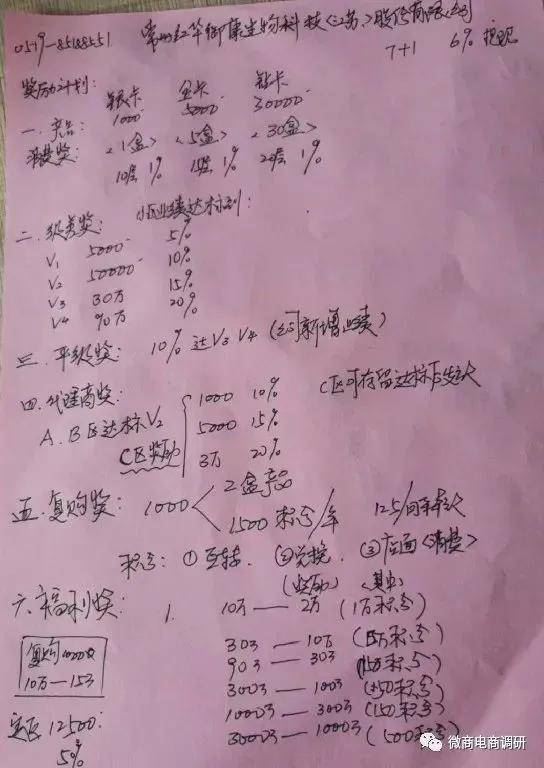 0519-85188551 常州红华御康生物科技(江苏)股份有限公司
7+1 6% 提现
奖励计划: 银卡 金卡 钻卡
一. 产品: 1000 5000 30000
消费奖: <1盒> <5盒> <30盒>
10层 1% 15层 1% 20层 1%
二. 级差奖: 小区业绩达标到:
V1 5000 5%
V2 50000 10%
V3 30万 15%
V4 90万 20%
三. 平级奖: 10% 达V3 V4 (公司新增业绩)
四. 代理商奖: 1000 10% C区可存留达标后发放
A.B区达标V2 5000 15%
C区奖励 3万 20%
五. 复购奖: 1000 2盒产品
1500积分/年 125/间
积分: ①互转 ②兑换 ③店面<消费>
(奖励) (其中)
六. 福利奖: 1. 10万——2万 (1万积分)
30万——10万 (5万积分)
90万——30万 (150积分)
复购1000
10万—15万
300万——100万 (50积分)
1000万——300万 (150积分)
12500: 3000万——1000万 (500积分)
5%
微商电商调研